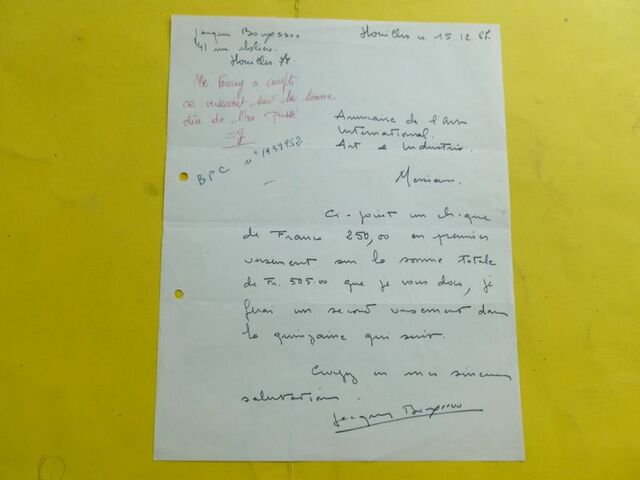 Jacques
41 rue Molière
Houilles
Houilles le 15.12.67
Mr Fourny a compté
ce versement sur la somme
dûe de l'an passé
BPC n° 1939952
Annuaire de l'Art
International.
Art et Industrie.
Messieurs,
Ci-joint un chèque
de Francs 250,00 en premier
versement sur la somme totale
de Fr. 505.00 que je vous dois, je
ferai un second versement dans
la quinzaine qui suit.
Croyez en mes sincères
salutations.
Jacques